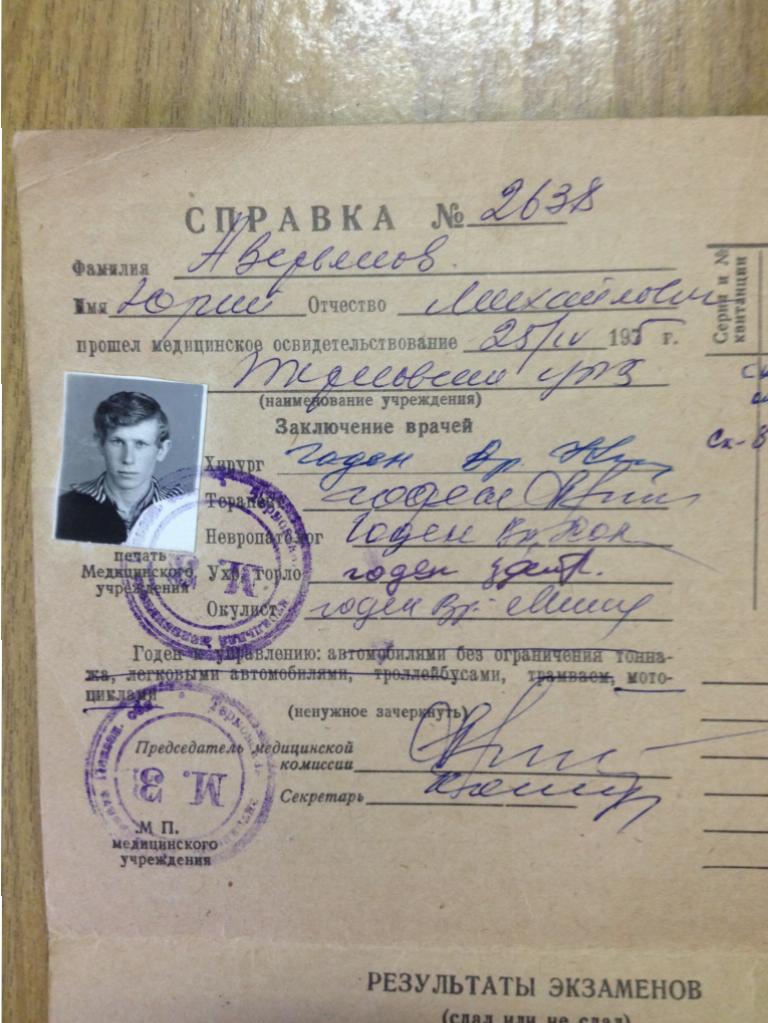 СПРАВКА № 2638
Фамилия Аверьянов
Имя Юрий Отчество Михайлович
прошел медицинское освидетельствование 25/IV 1975 г.
(наименование учреждения)
Заключение врачей
Хирург годен Вр.
Терапевт годен
Невропатолог Годен Вр.
Ухо, горло годен
Окулист годен Вр.
печать
Медицинского
учреждения
Годен к управлению: автомобилями без ограничения тонна-
жа, легковыми автомобилями, троллейбусами, трамваем, мото-
циклами
(ненужное зачеркнуть)
Председатель медицинской
комиссии
Секретарь
М. З.
М П.
медицинского
учреждения
Серия и №
квитанции
РЕЗУЛЬТАТЫ ЭКЗАМЕНОВ
(сдал или не сдал)